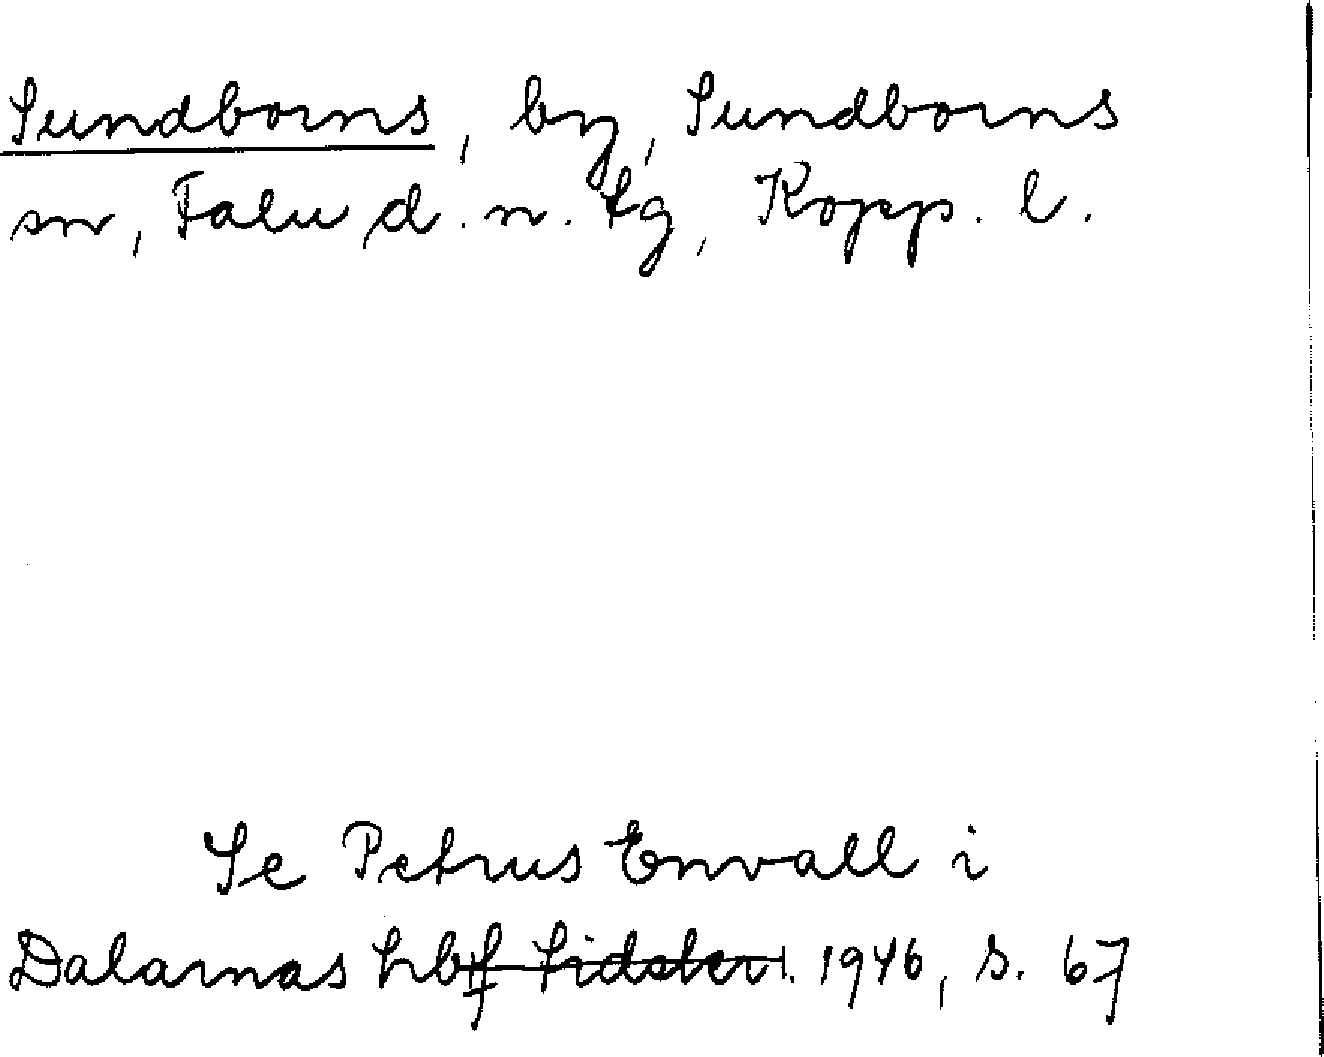 Sundborns, by, Sundborns
sn, Falu d. n. tg, Kopp. l.
Se Petrus Envall i
Dalarnas hbf 1946, s. 67